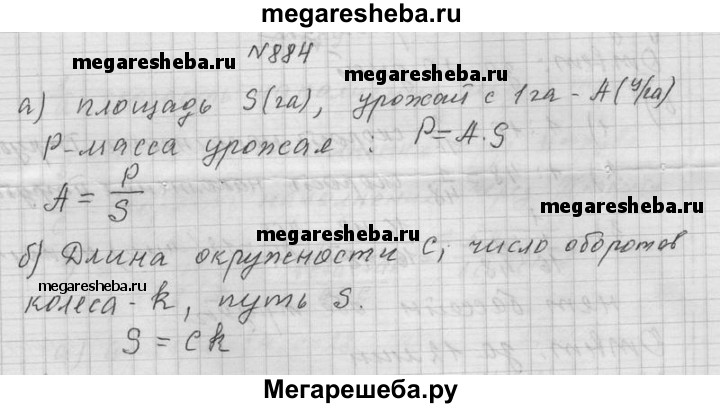 megaresheba.ru
N884
megaresheba.ru
megaresheba.ru
а) площадь S(га), урожай с 1га - A(ц/га)
P-масса урожая : P=A·S
A = P/S
megaresheba.ru
megaresheba.ru
б) Длина окружности C, число оборотов
megaresheba.ru
колеса - k, путь S.
S = Ck
megaresheba.ru
megaresheba.ru
Мегарешеба.ру